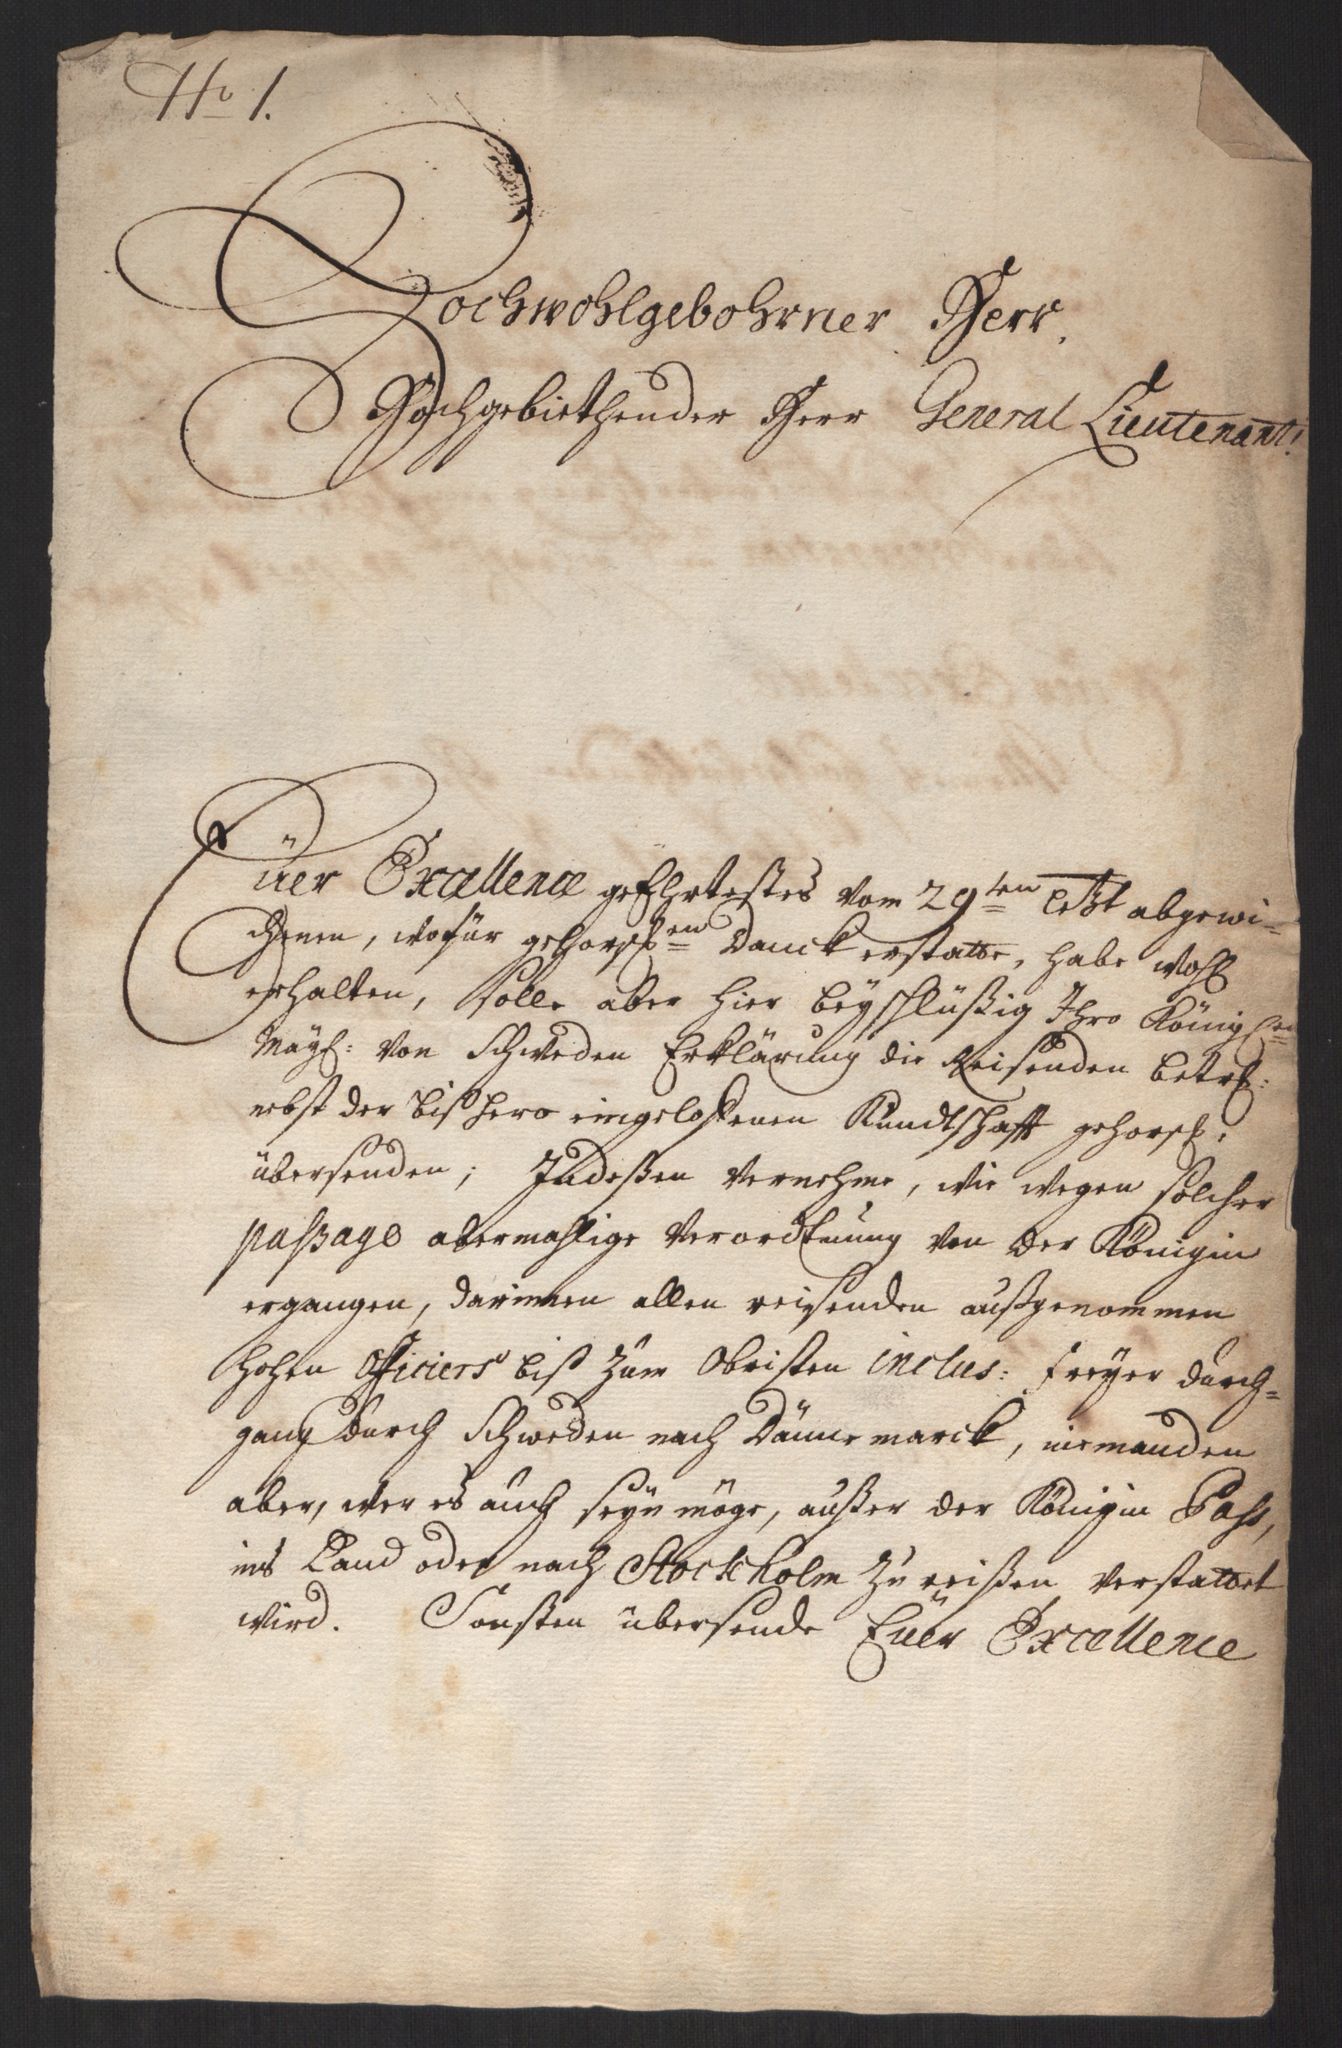 No 1.
Hochwohlgebohrner Herr,
Hochgebiethender Herr General Lieutenant!
Eüer Excellence geEhrtestes vom 29ten letzt abgewi-
chenen, wofür gehorsen Danck erstatte, habe wohl
erhalten, solle aber hier beyschlüßig Ihro Königlen
Mayl: von Schweden Erklärung die Reisenden betrl:
nebst der bißhero eingeloffenen Kundtschafft gehorsl:
übersenden; Indeßen vernehme, wie wegen solcher
passage abermahlige Verordtnung von der Königin
ergangen, darinnen allen reisenden außgenommen
hohen Officiers biß zum Obristen inclus: freyer durch-
gang durch Schweden nach Dännemarck, niemanden
aber, wer es auch seyn möge, außer der Königin Pass,
ins Land oder nach Stockholm zu reißen verstattet
wird. Sonsten übersende Eüer Excellence